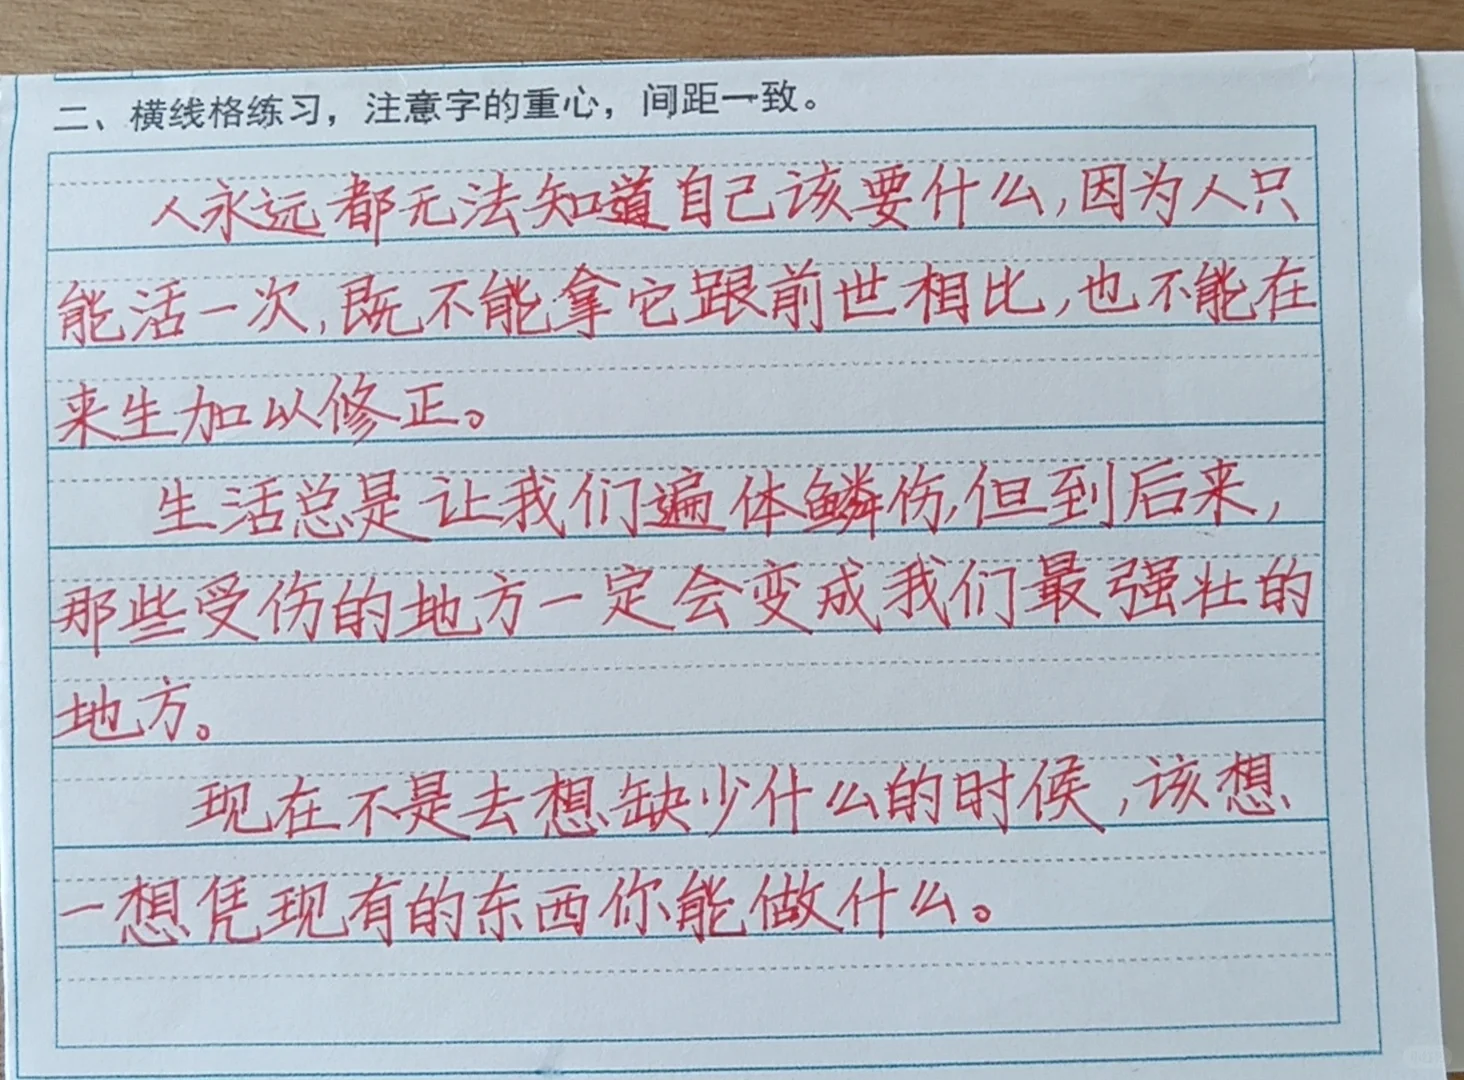 二、横线格练习，注意字的重心，间距一致。
人永远都无法知道自己该要什么,因为人只
能活一次,既不能拿它跟前世相比,也不能在
来生加以修正。
生活总是让我们遍体鳞伤,但到后来,
那些受伤的地方一定会变成我们最强壮的
地方。
现在不是去想缺少什么的时候,该想
一想凭现有的东西你能做什么。